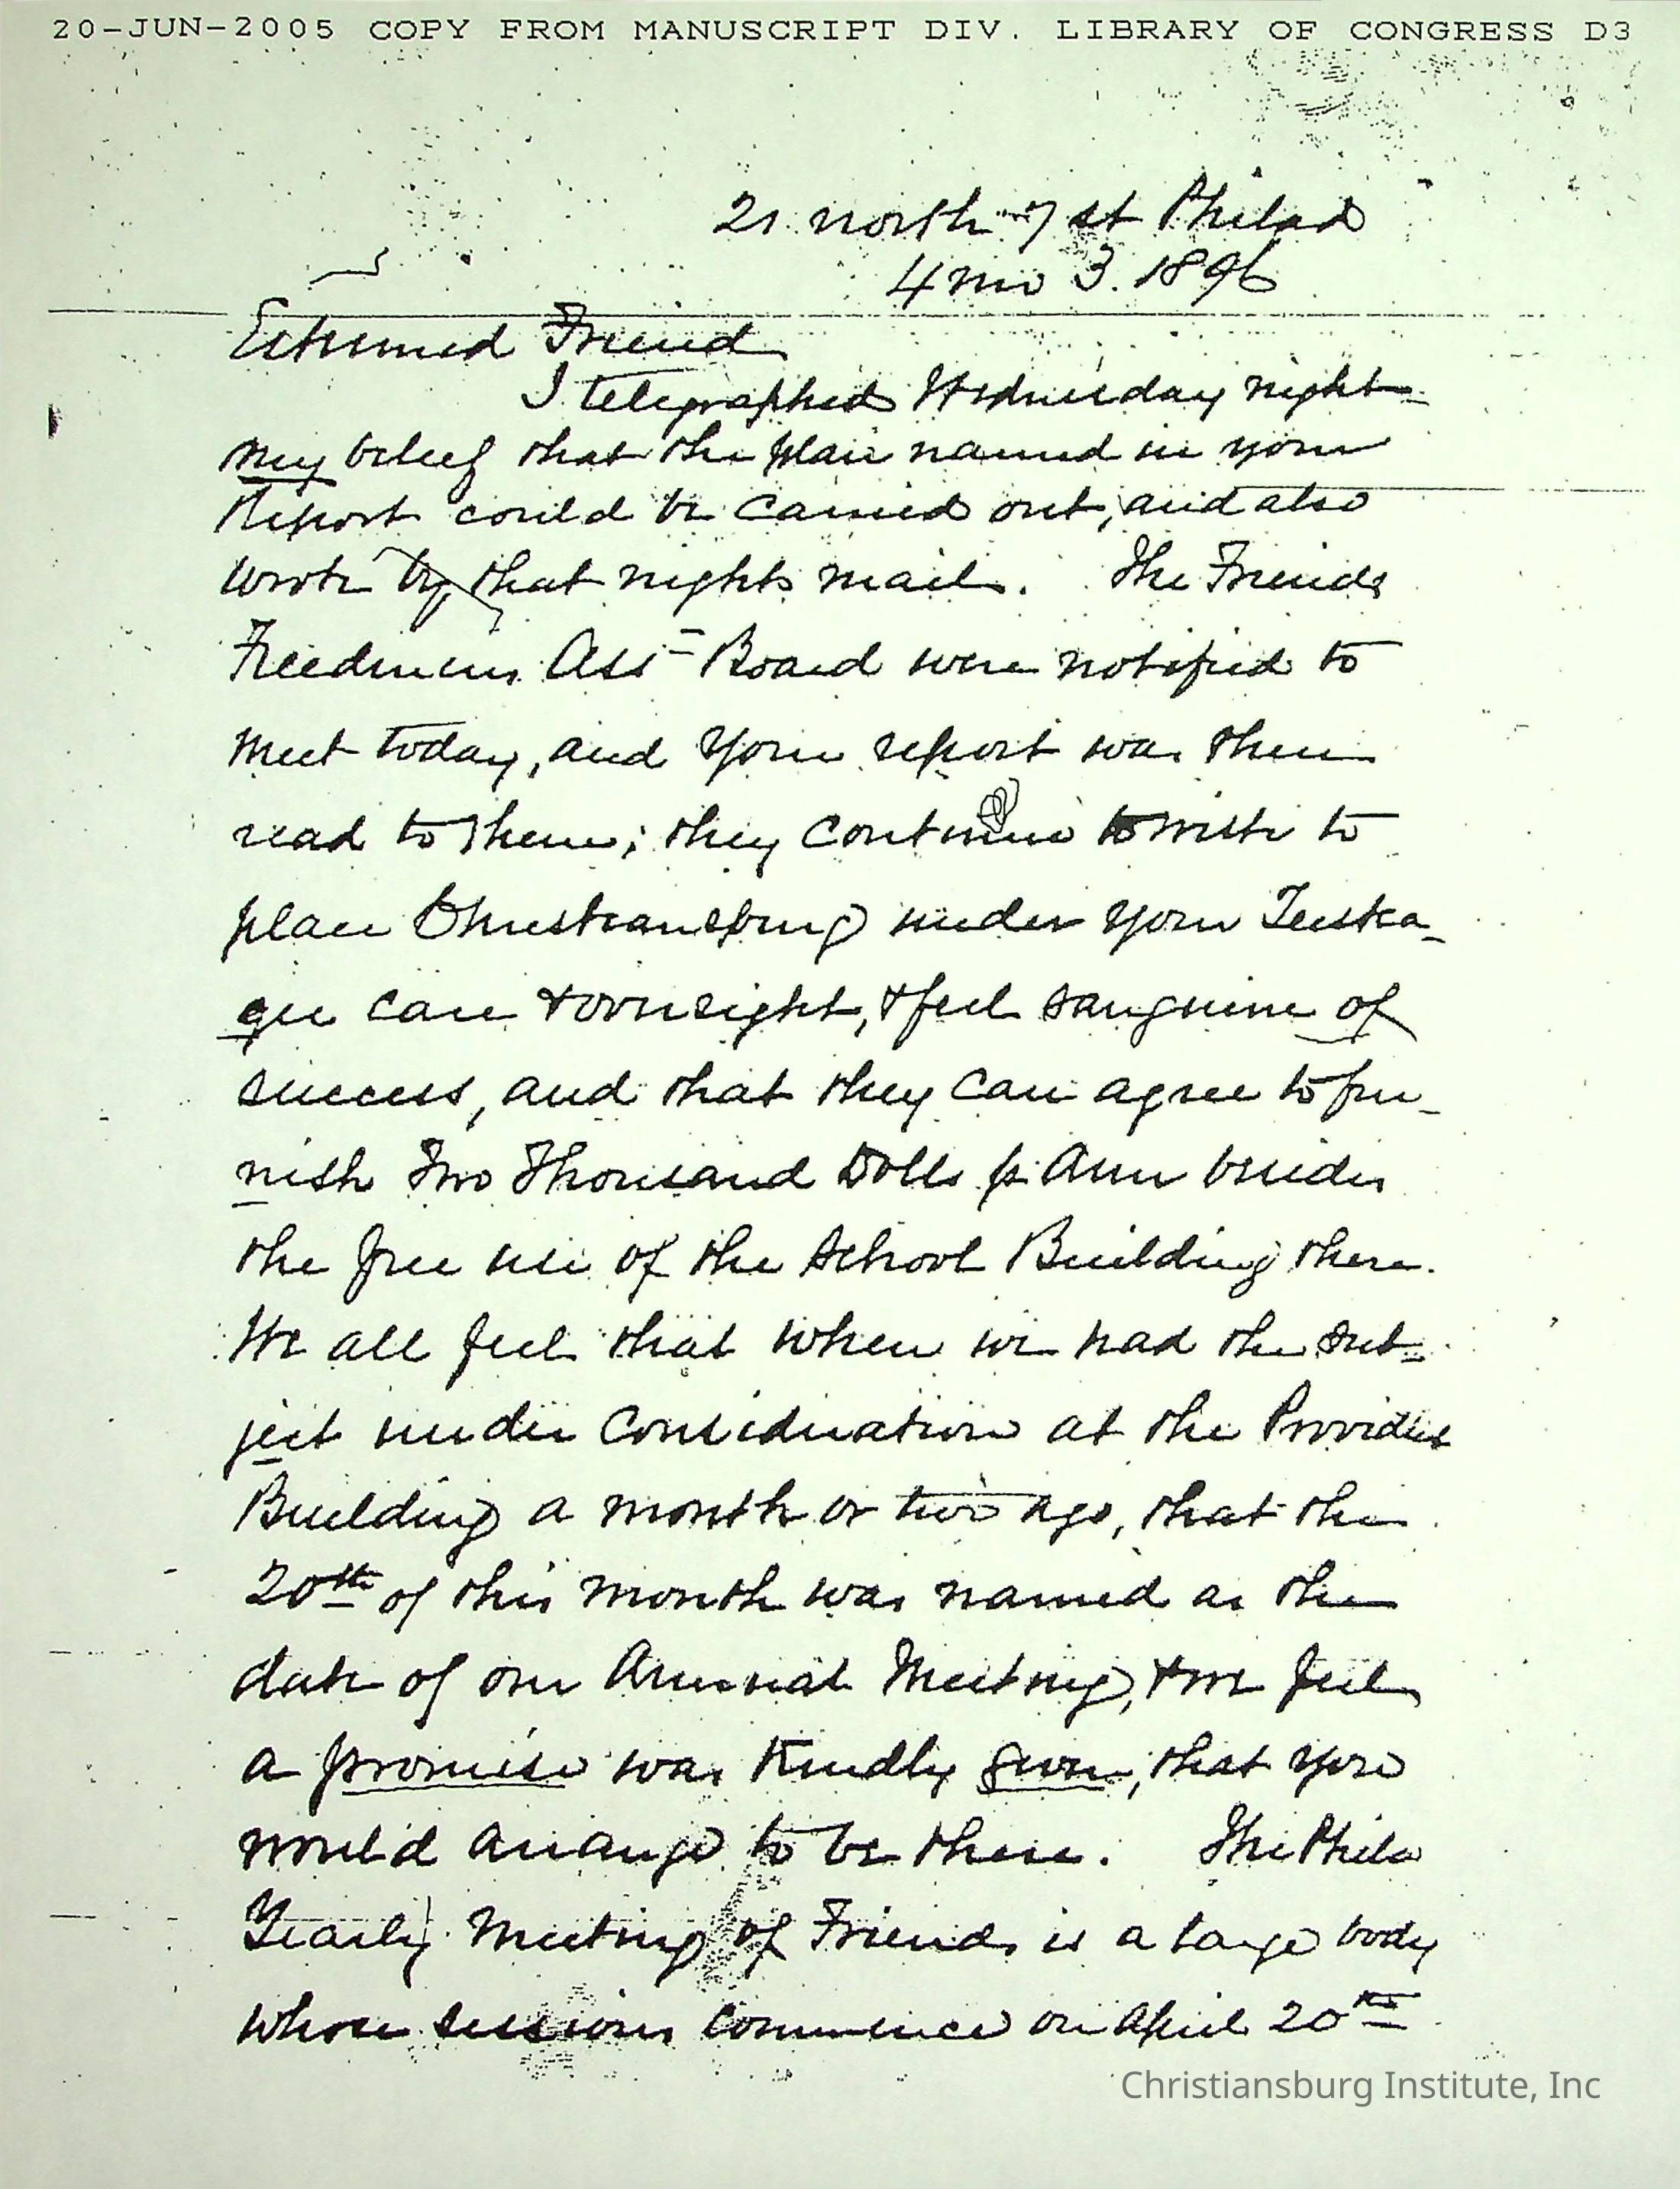 20-JUN-2005 COPY FROM MANUSCRIPT DIV. LIBRARY OF CONGRESS D3
21 north 7 st Philad
4 mo 3. 1896
Esteemed Friend
I telegraphed Wednesday night
my belief that the plan named in your
Report could be carried out, and also
wrote by that nights mail. The Friends
Freedmens Ass- Board were notified to
meet today, and your report was then
read to them; they continue to wish to
place Christiansburg under your Tuske-
gee care & oversight, & feel sanguine of
success, and that they can agree to fur-
nish Two Thousand Dolls p Ann besides
the free use of the School Building there.
We all feel that when we had the sub-
ject under consideration at the Provident
Building a month or two ago, that the
20th of this month was named as the
date of our Annual Meeting, & we feel
a promise was kindly given, that you
would arrange to be there. The Phila
Yearly Meeting of Friends is a large body
whose sessions commence on April 20th
Christiansburg Institute, Inc